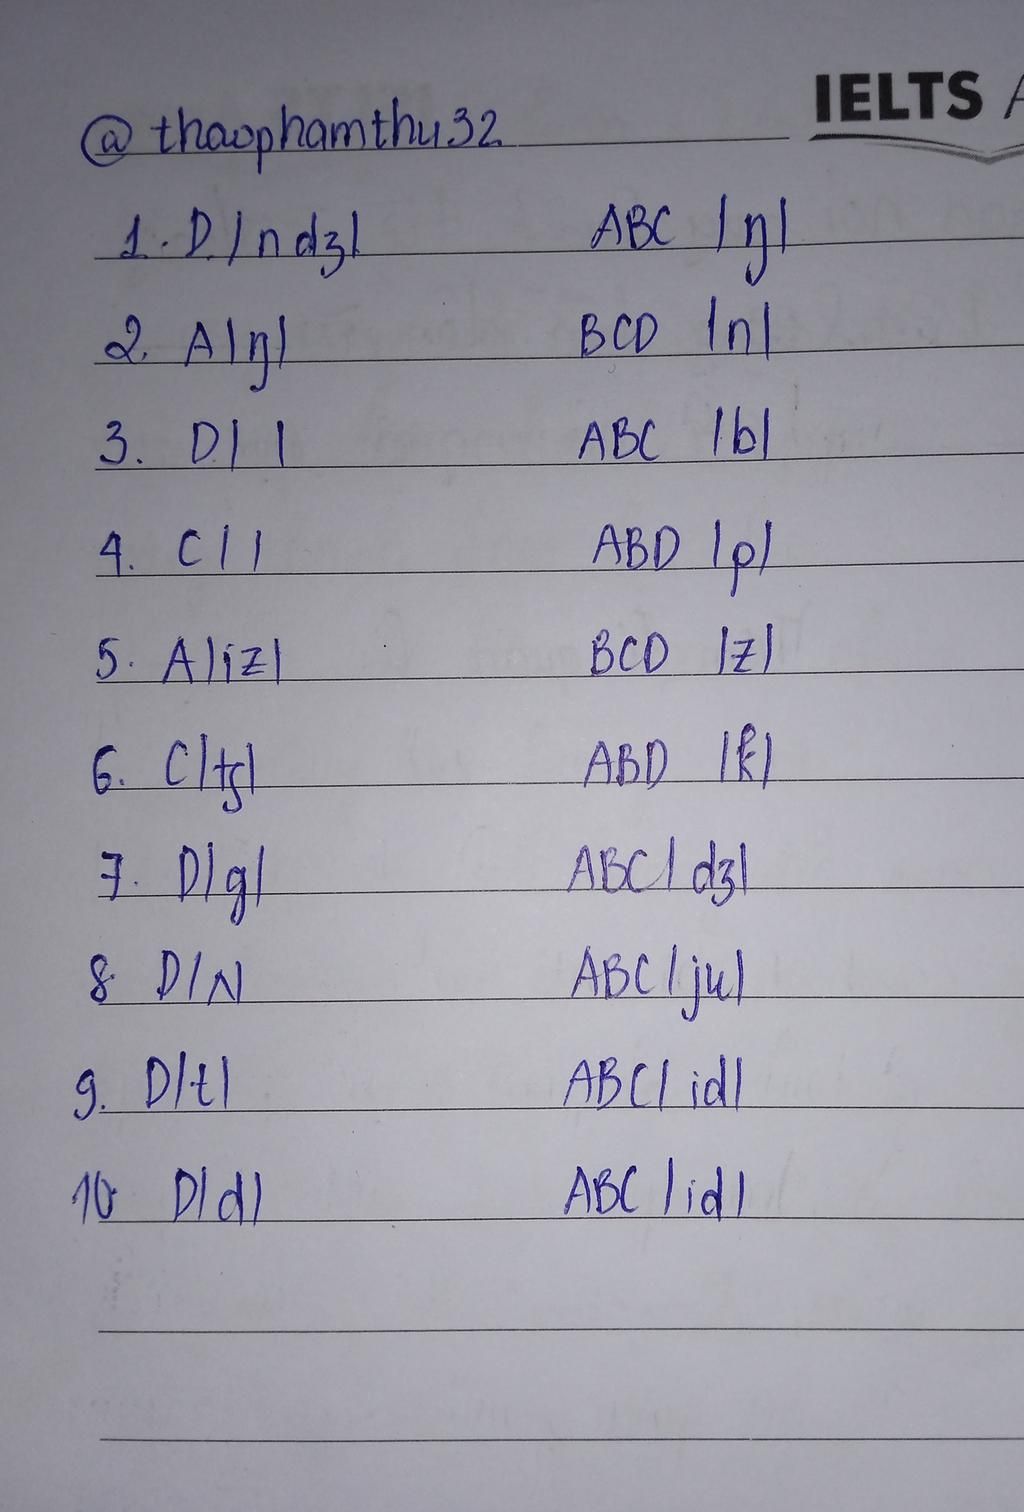 IELTS
@thaophamthu32
1. D /ndʒ/ ABC /ŋ/
2. A /ŋ/ BCD /n/
3. D / / ABC /b/
4. C / / ABD /p/
5. A /iz/ BCD /z/
6. C /tʃ/ ABD /k/
7. D /g/ ABC /dʒ/
8. D /ʌ/ ABC /ju/
9. D /t/ ABC /id/
10 D /d/ ABC /id/